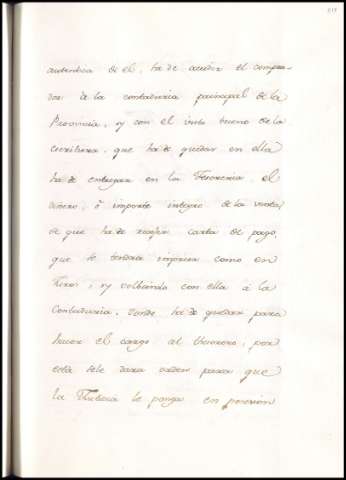 autentica de el, ha de acudir el compra-
dor à la contaduria principal de la
Provincia, y con el visto bueno de la
escritura, que ha de quedar en ella
ha de entregar en la Thesoreria, el
dinero, ò importe integro de la venta,
de que ha de recojer carta de pago,
que le tendrà impresa como en
y volviendo con ella à la
Contaduria, donde ha de quedar para
hacer el cargo al thesorero, por
esta se le dara orden para que
la Justicia le ponga en posesion